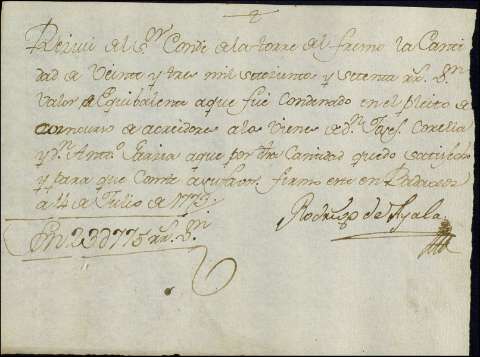 Reciui del S.or Conde de la torre del fresno la Canti
dad de Veinte y tres mil setezientos y setenta rr.s V.n
Valor de Equibalente aque fué Condenado en el pleito de
concurso de acreedores a los Vienes de d.n
y d.n Ant.o Garzia aque por dha Cantidad quedo satisfecho
y para que Conste a su favor firmo este en Badajoz
a 4 de Julio de 1773
Rodrigo de Ayala